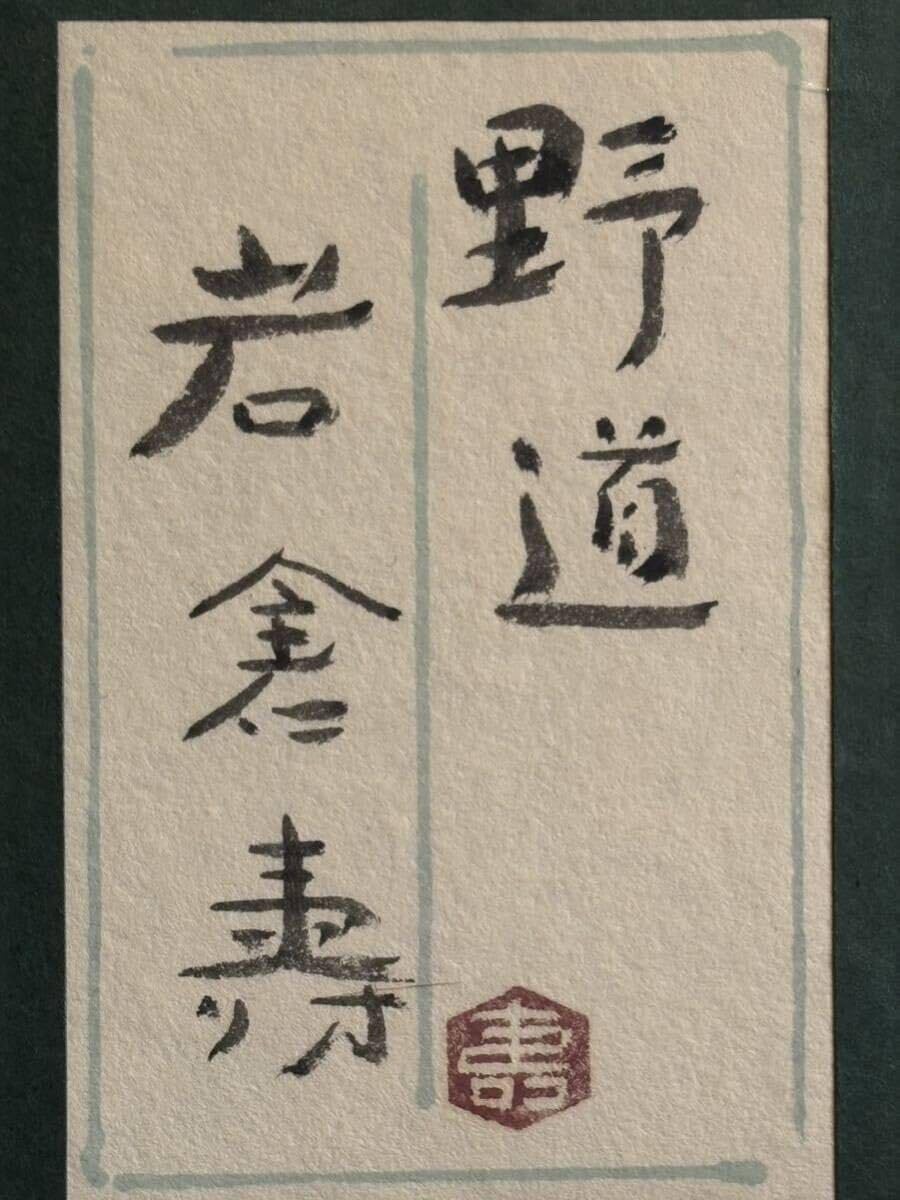 野道
岩倉壽
壽